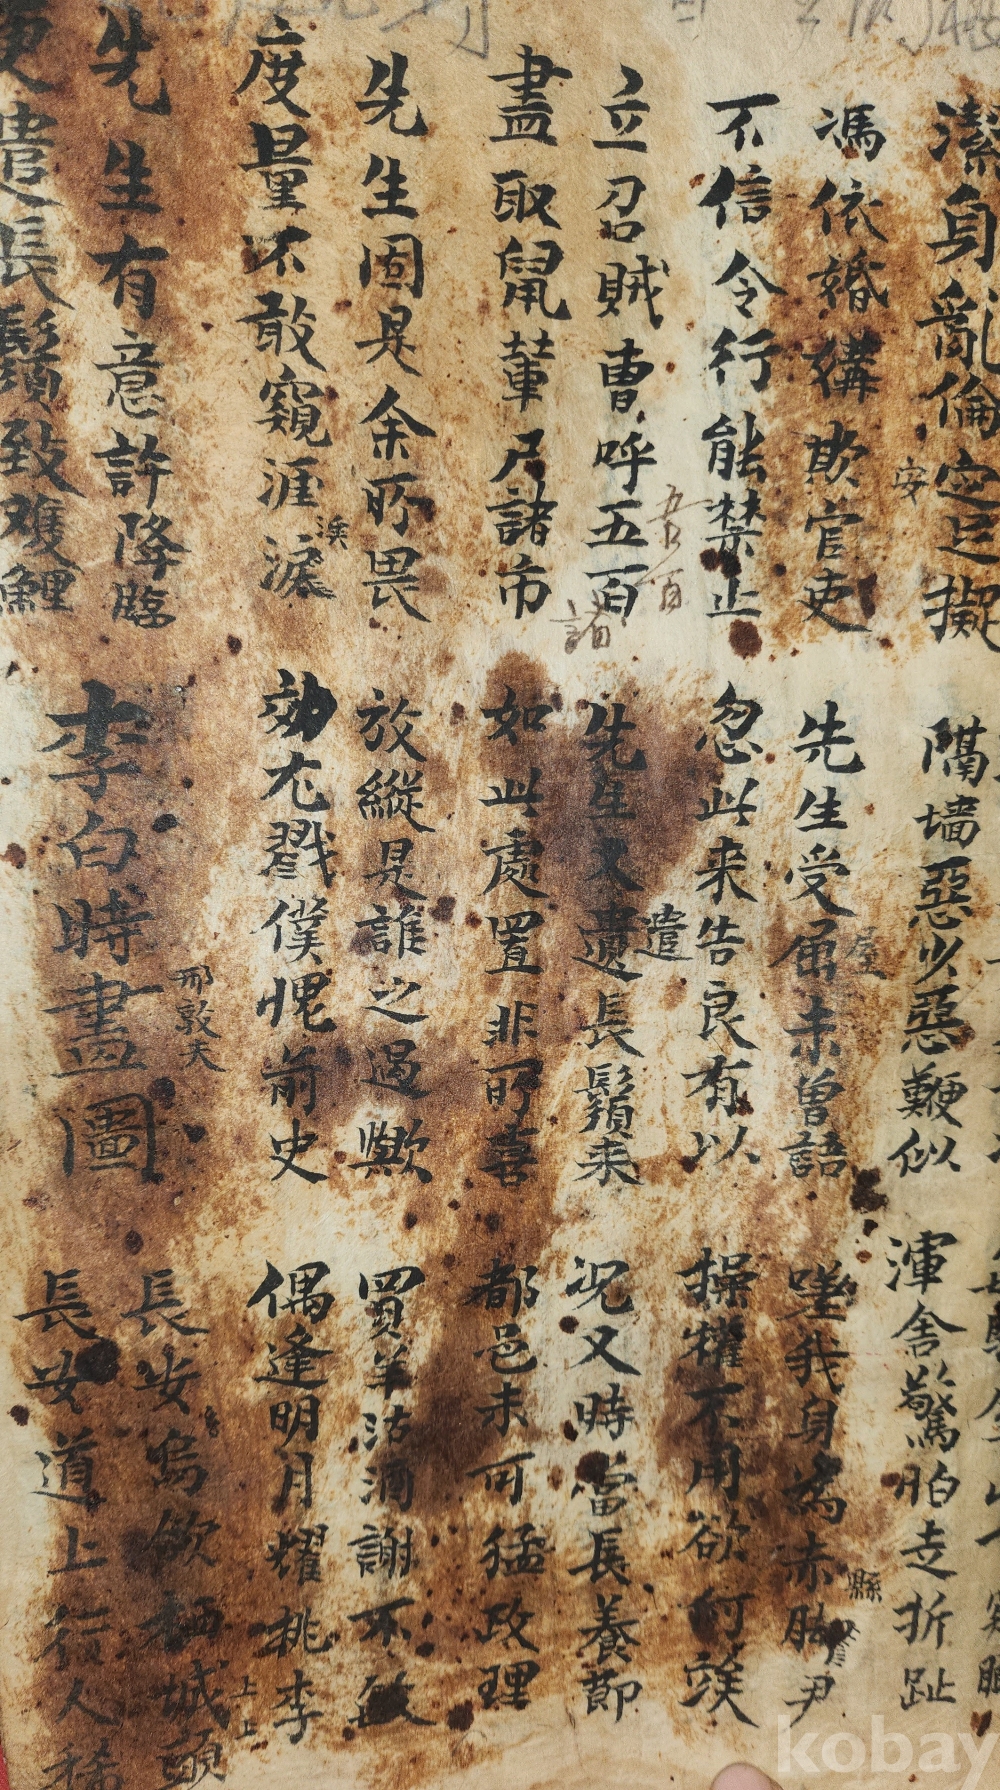 潔身亂倫定足擬 隔墻惡少惡鞭似 渾舍驚怕走折趾
安
馮依婚媾欺官吏 先生受屈未曾語 嗟我身為赤脚尹
屋
縣
不信令行能禁止 忽此来告良有以 操權不用欲何竢
吾百
遣
立召賊曹呼五百 先生又遺長鬚来 况又時當長養節
諸
盡取鼠輩尸諸市 如此處置非所喜 都邑未可猛政理
先生固是余所畏 放縱是誰之過歟 買羊沽酒謝不敏
涘
度量不敢窺涯淚 效尤戮僕愧前史 偶逢明月耀桃李
上上
先生有意許降臨
邢敦夫
長安烏欲栖城頭
更遣長鬚致难鯉
李白時畫圖
長安道上行人稀
kobay